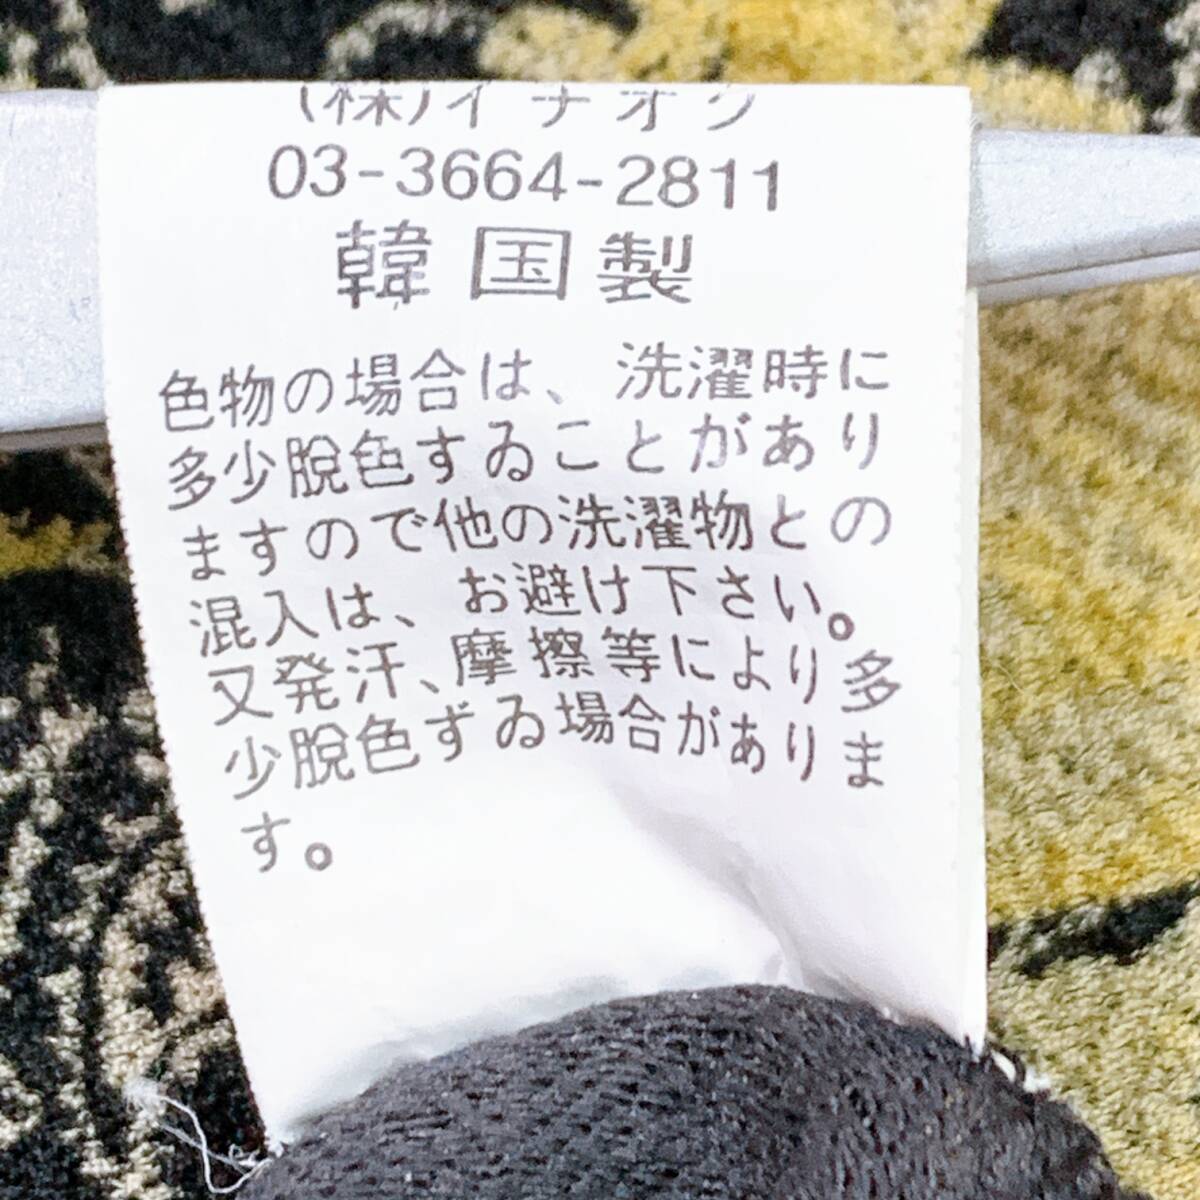 (株)イチオク
03-3664-2811
韓国製
色物の場合は、洗濯時に
多少脱色すゐことがあり
ますので他の洗濯物との
混入は、お避け下さい。
又発汗、摩擦等により多
少脱色ずゐ場合がありま
す。